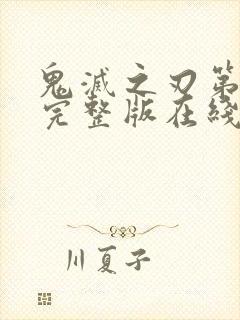 鬼滅之刃第
完整版在綫
川夏子